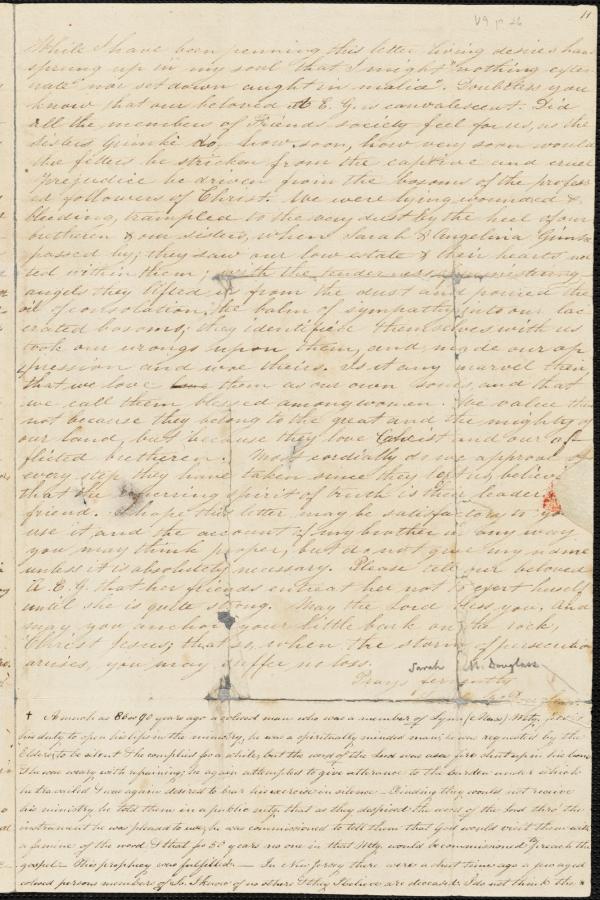 V9 p 26
11
While I have been penning this letter living desires have
sprung up in my soul that I might "nothing exten
uate" nor set down aught in malice". Doubtless you
know that our beloved A E. G. is convalescent. Did
all the members of Friends society feel for us, as the
sisters Grimké do, how soon, how very soon would
the fetters be stricken from the captive and cruel
prejudice be driven from the bosoms of the profess
ed followers of Christ. We were lying wounded &
bleeding, trampled to the very dust by the heel of our
brethren & our sisters, when Sarah & Angelina Grimké
passed by; they saw our low estate & their hearts mel
ted within them; with the tenderness of ministering
angels they lifted us from the dust and poured the
oil of consolation, the balm of sympathy into our lac
erated bosoms; they identified themselves with us
took our wrongs upon them, and made our op
pression and woe theirs. Is it any marvel then
that we love them as our own souls, and that
we call them blessed among women. We value them
not because they belong to the great and the mighty of
our land, but because they love Christ and our af
flicted brethren. Most cordially do we approve of
every step they have taken since they left us, believing
that the unerring spirit of truth is their leader
friend. I hope this letter may be satisfactory to you
use it and the account of my brother in any way
you may think proper, but do not give my name
unless it is absolutely necessary. Please tell our beloved
A. E. G. that her friends entreat her not to exert herself
until she is quite strong. May the Lord bless you. And
may you anchor your little bark on the rock,
Christ Jesus; that so, when the storm of persecution
arises, you may suffer no loss.
Sarah M. Douglass
Prays fervently
† As much as 80 or 90 years ago a colored man who was a member of Lynn (Mass) Mtg, felt it
his duty to open his lips in the ministry, he was a spiritually minded man; he was requested by the
Elders to be silent & he complied for a while, but the word of the Lord was as a fire shut up in his bones
& he was weary with refraining; he again attempted to give utterance to the burden under which
he travailed & was again desired to bear his exercise in silence — Finding they would not receive
his ministry he told them in a public mtg that as they despised the word of the Lord thro' the
instrument he was pleased to use, he was commissioned to tell them that God would visit them with
a famine of the word & that for 50 years no one in that Mtg would be commissioned to preach the
gospel — This prophecy was fulfilled. — In New Jersey there were a short time ago a few aged
colored persons members of So. I know of no others & they I believe are deceased. I do not think the